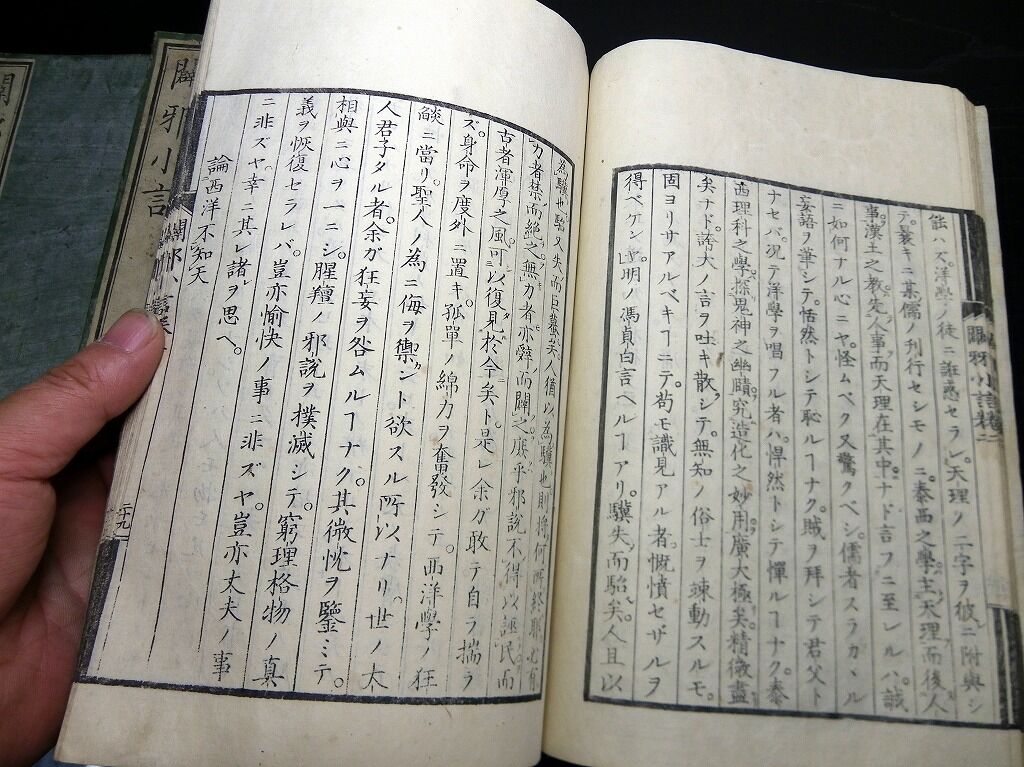 能ハズ。洋學ノ徒ニ誑惑セラレ。天理ノ二字ヲ彼ニ附與シ
テ。曩キニ某儒ノ刊行セシモノニ。泰西之學。主天理。而後人
事。漢土之教。先人事。而天理在其中。ナド言フニ至レルハ。誠
ニ如何ナル心ニヤ。怪ムベク又驚クベシ。儒者スラカヽル
妄語ヲ筆シテ。恬然トシテ恥ルヿナク。賊ヲ拜シテ君父ト
ナセバ。况テ洋學ヲ唱フル者ハ。悍然トシテ憚ルヿナク。泰
西理科之學。探鬼神之幽賾。究造化之妙用。廣大極矣。精微盡
矣。ナド。誇大ノ言ヲ吐キ散シテ。無知ノ俗士ヲ竦動スルモ。
固ヨリサアルベキヿニテ。苟モ識見アル者。慨憤セザルヲ
得ベケンヤ。明ノ馮貞白言ヘルヿアリ。驥失而駘矣。人且以
為驥也。駘又失而矣。人猶以為驥也。則將何所終耶。必有
力者。禁而絶之。無力者。亦辭而闢之。庶乎邪說不得以誣民。而
古者渾厚之風。可以復見於今矣ト。是レ余ガ敢テ自ラ揣ラ
ズ。身命ヲ度外ニ置キ。孤單ノ綿力ヲ奮發シテ。西洋學ノ狂
燄ニ當リ。聖人ノ為ニ侮ヲ禦ント欲スル所以ナリ。世ノ大
人君子タル者。余ガ狂妄ヲ咎ムルヿナク。其微忱ヲ鑒ミテ。
相與ニ心ヲ一ニシ。腥羶ノ邪說ヲ撲滅シテ。窮理格物ノ真
義ヲ恢復セラレバ。豈亦愉快ノ事ニ非ズヤ。豈亦大夫ノ事
ニ非ズヤ。幸ニ其レ諸ヲ思ヘ。
論西洋不知天
闢邪小言
二十九
闢邪小言